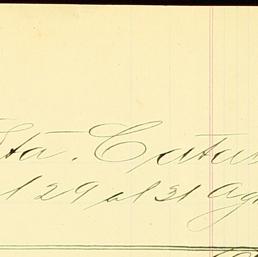 Sta. Cata
l 29 al 31 Ag